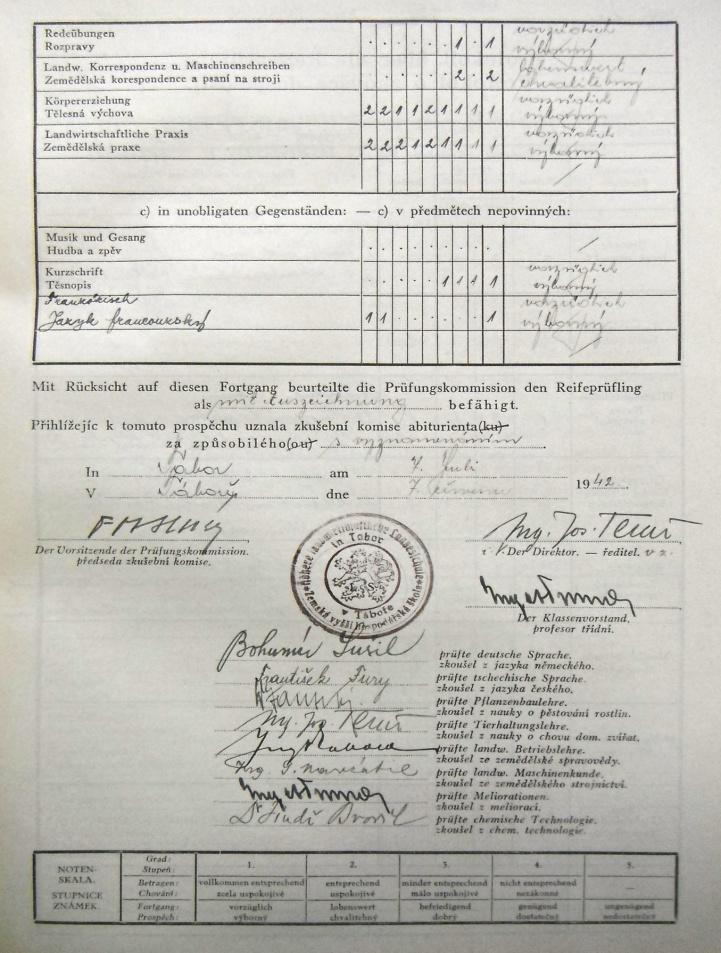 Redeübungen
Rozpravy
. . . . . . 1 . 1
vorzüglich
výborný
Landw. Korrespondenz u. Maschinenschreiben
Zemědělská korespondence a psaní na stroji
. . . . . . 2 . 2
lobenswert
chvalitebný
Körpererziehung
Tělesná výchova
2 2 1 1 2 1 1 1 1
vorzüglich
výborný
Landwirtschaftliche Praxis
Zemědělská praxe
2 2 2 1 2 1 1 1 1
vorzüglich
výborný
c) in unobligaten Gegenständen: — c) v předmětech nepovinných:
Musik und Gesang
Hudba a zpěv
. . . . . . . . .
Kurzschrift
Těsnopis
. . . . . 1 1 1 1
vorzüglich
výborný
Französisch
Jazyk francouzský
1 1 . . . . . . 1
vorzüglich
výborný
Mit Rücksicht auf diesen Fortgang beurteilte die Prüfungskommission den Reifeprüfling
als mit Auszeichnung befähigt.
Přihlížejíc k tomuto prospěchu uznala zkušební komise abiturienta(ku)
za způsobilého(ou) s vyznamenáním
In Tábor am 7. Juli
V Táboře dne 7. července 1942.
Der Vorsitzende der Prüfungskommission.
předseda zkušební komise.
Höhere landwirtschaftliche Landesschule
in Tabor
v Táboře
Zemská vyšší hospodářská škola
Ing. Jos. Teml
i. V. Der Direktor. — ředitel. v z.
Der Klassenvorstand,
profesor třídní.
Bohumír Sušil
prüfte deutsche Sprache.
zkoušel z jazyka německého.
František Fury
prüfte tschechische Sprache.
zkoušel z jazyka českého.
prüfte Pflanzenbaulehre.
zkoušel z nauky o pěstování rostlin.
Ing. Jos. Teml
prüfte Tierhaltungslehre.
zkoušel z nauky o chovu dom. zvířat.
prüfte landw. Betriebslehre.
zkoušel ze zemědělské spravovědy.
Ing. S. Navrátil
prüfte landw. Maschinenkunde.
zkoušel ze zemědělského strojnictví.
prüfte Meliorationen.
zkoušel z meliorací.
Dr Jindř Dvořák
prüfte chemische Technologie.
zkoušel z chem. technologie.
NOTEN-
SKALA.
STUPNICE
ZNÁMEK.
Grad: 1. 2. 3. 4. 5.
Stupeň:
Betragen: vollkommen entsprechend entsprechend minder entsprechend nicht entsprechend —
Chování: zcela uspokojivé uspokojivé málo uspokojivé nezákonné
Fortgang: vorzüglich lobenswert befriedigend genügend ungenügend
Prospěch: výborný chvalitebný dobrý dostatečný nedostatečný